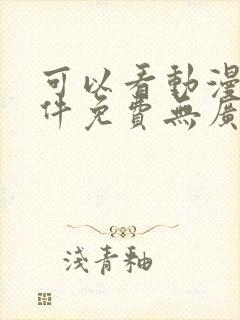 可以看動漫
件免費無廣
淺青釉